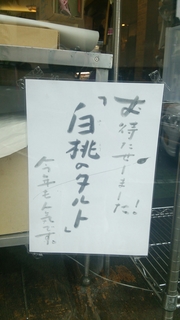 お待たせしました!
「白桃のタルト」
今年も人気です。